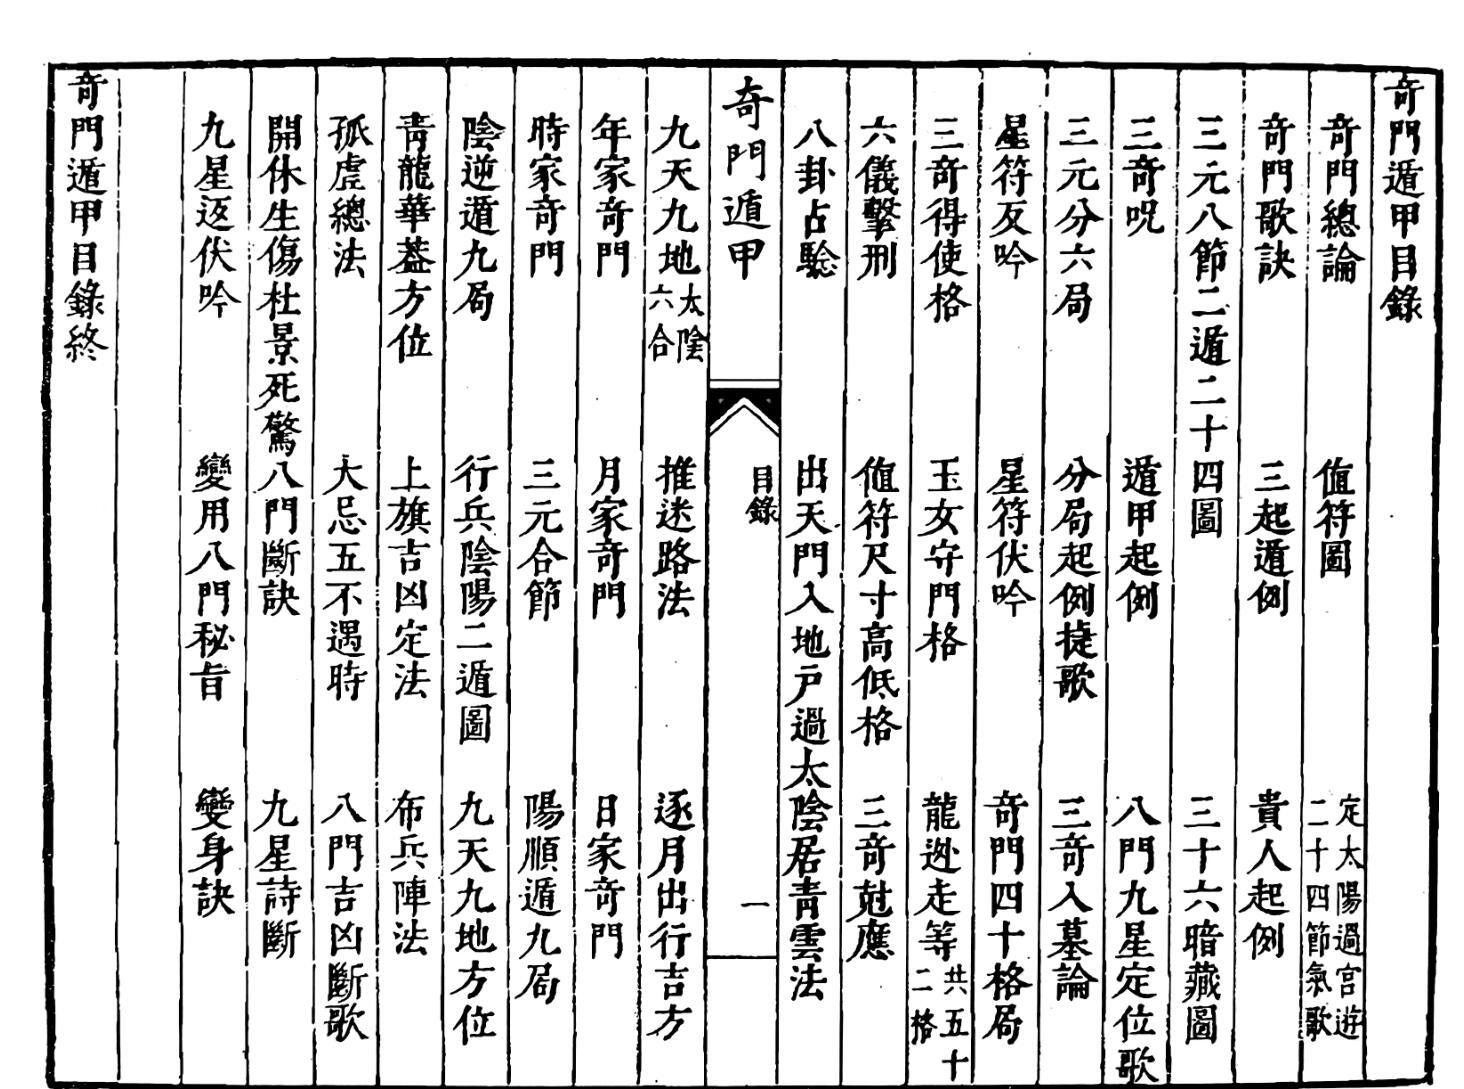 奇門遁甲目錄
奇門總論　值符圖　定太陽過宮遊二十四節氣歌
奇門歌訣　三起遁例　貴人起例
三元八節二遁二十四圖　三十六暗藏圖
三奇呪　遁甲起例　八門九星定位歌
三元分六局　分局起例捷歌　三奇入墓論
星符反吟　星符伏吟　奇門四十格局
三奇得使格　玉女守門格　龍逃走等共五十二格
六儀擊刑　值符尺寸高低格　三奇尅應
八卦占驗　出天門入地戶過太陰居青雲法
奇門遁甲　目錄　一
九天九地太陰六合　推迷路法　逐月出行吉方
年家奇門　月家奇門　日家奇門
時家奇門　三元合節　陽順遁九局
陰逆遁九局　行兵陰陽二遁圖　九天九地方位
青龍華葢方位　上旗吉凶定法　布兵陣法
孤虛總法　大忌五不遇時　八門吉凶斷歌
開休生傷杜景死驚八門斷訣　九星詩斷
九星返伏吟　變用八門秘旨　變身訣
奇門遁甲目錄終